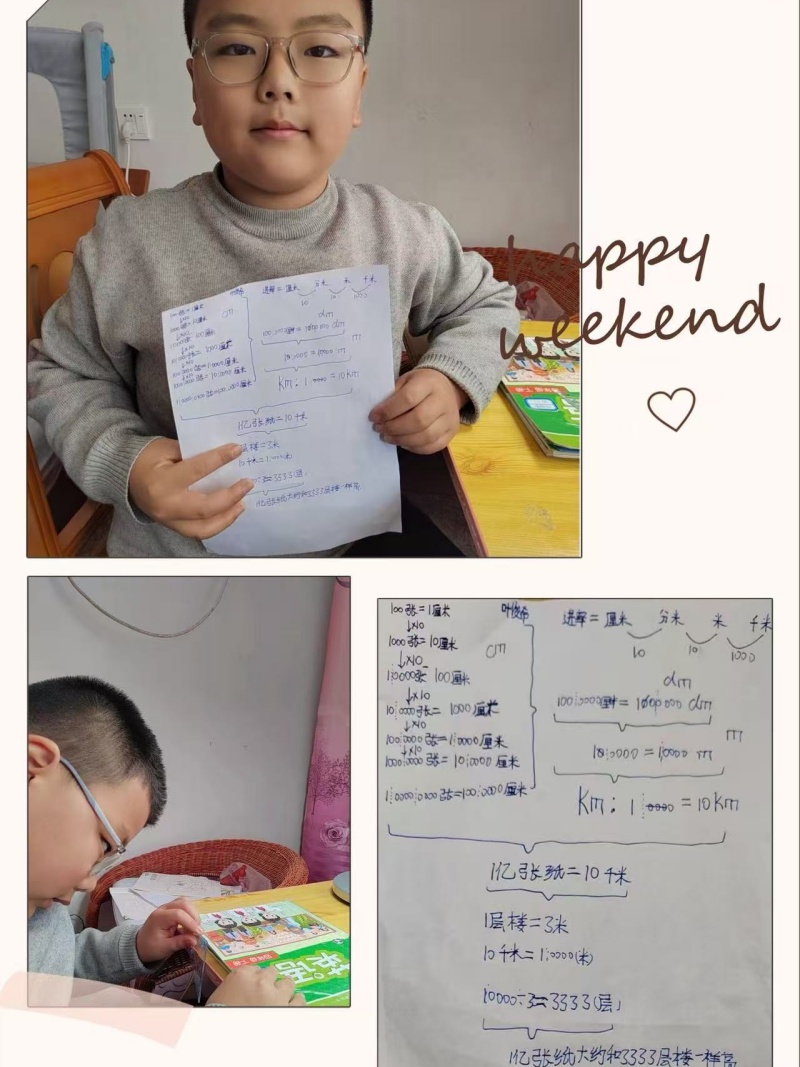 happy
weekend
100张=1厘米
↓×10
1000张=10厘米
↓×10
1|0000张 100厘米
↓×10
10|0000张=1000厘米
↓×10
100|0000张=1|0000厘米
↓×10
1000|0000张=10|0000厘米
1|0000|0000张=100|0000厘米
cm
进率= 厘米 分米 米 千米
10 10 1000
dm
dm
m
10|0000=1|0000 m
km: 1|0000=10km
1亿张纸=10千米
1层楼=3米
10千米=1|0000(米)
10000÷3≈3333(层)
1亿张纸大约和3333层楼一样高
英语